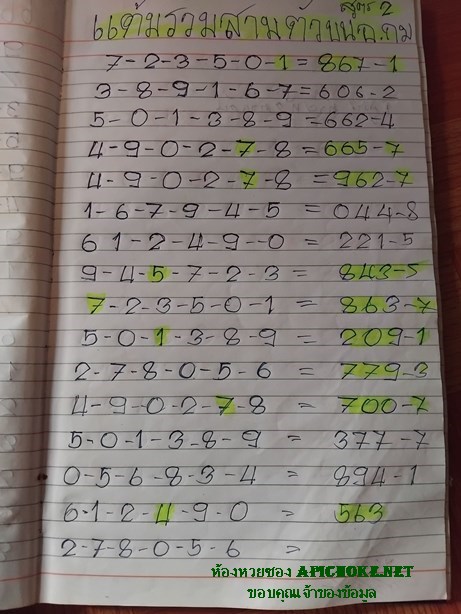 สูตร 2
แต้มรวมสามตัวบนอ.ถม
7-2-3-5-0-1=867-1
3-8-9-1-6-7=606-2
5-0-1-3-8-9=662-4
4-9-0-2-7-8=665-7
4-9-0-2-7-8=962-7
1-6-7-9-4-5=044-8
61-2-4-9--0=221-5
9-4-5-7-2-3=843-5
7-2-3-5-0-1=863-7
5-0-1-3-8-9=209-1
2-7-8-0-5-6=779-3
4-9-0-2-7-8=700-7
5-0-1-3-8-9=377-7
0-5-6-8-3-4=894-1
6-1-2-4-9-0=563
2-7-8-0-5-6=
ห้องหวยซอง APICHOKE.NET
ขอบคุณเจ้าของข้อมูล